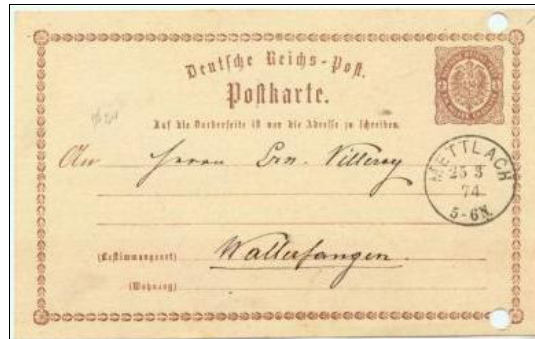 Deutsche Reichs-Post.
Postkarte.
Auf die Vorderseite ist nur die Adresse zu schreiben.
An Herrn Ern. Villeroy
METTLACH
25 3
74
5-6N.
(Bestimmungsort) Wallerfangen.
(Wohnung)